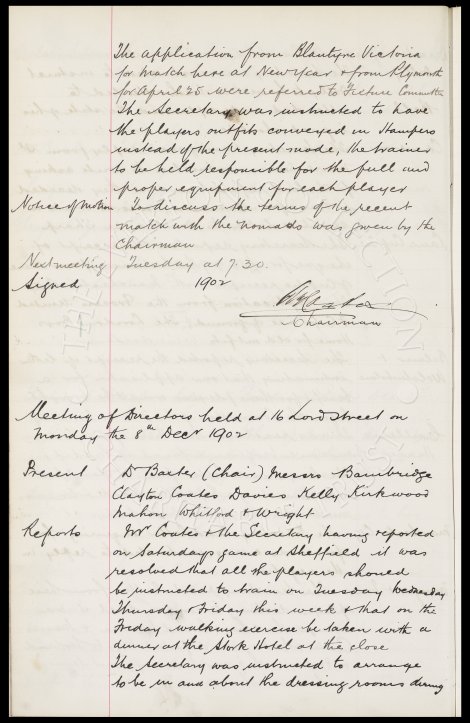 The application from Blantyre Victoria
for match here at New Year & from Plymouth
for April 25 were referred to Fixture Committee
The Secretary was instructed to have
the players outfits conveyed in Hampers
instead of the present mode, the trainer
to be held responsible for the full and
proper equipment for each player
Notice of Motion To discuss the terms of the recent
match with the Nomads was given by the
Chairman
Next meeting Tuesday at 7.30.
Signed 1902
Chairman
Meeting of Directors held at 16 Lord Street on
Monday the 8th Decr 1902
Present Dr Baxter (Chair) Messrs Bainbridge
Clayton Coates Davies Kelly Kirkwood
Mahon Whitford & Wright
Reports Mr Coates & the Secretary having reported
on Saturdays game at Sheffield it was
resolved that all the players should
be instructed to train on Tuesday Wednesday
Thursday & Friday this week & that on the
Friday walking exercise be taken with a
dinner at the Stork Hotel at the close
The Secretary was instructed to arrange
to be in and about the dressing rooms during